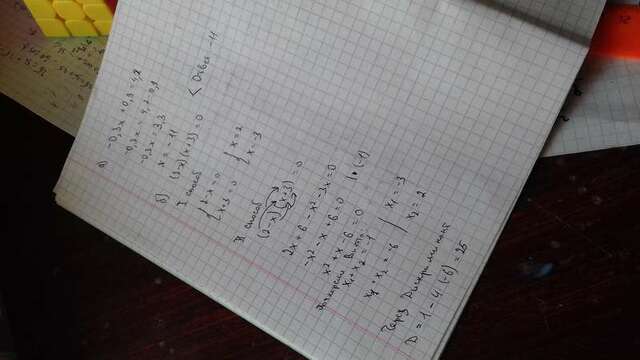 а) -0,3x + 0,9 = 4,2
-0,3x = 4,2-0,9
-0,3x = 3,3
x = -11
< Ответ -11
б) (2-x)(x+3) = 0
I способ
2-x=0
x+3=0
x=2
x=-3
II способ
(2-x)(x+3) = 0
2x+6-x²-3x=0
-x²-x+6=0 |•(-1)
x²+x-6=0
Виета:
x₁+x₂=-1
x₁ • x₂ = -6
x₁=-3
x₂=2
Через Дискриминант
D = 1-4•(-6)=25